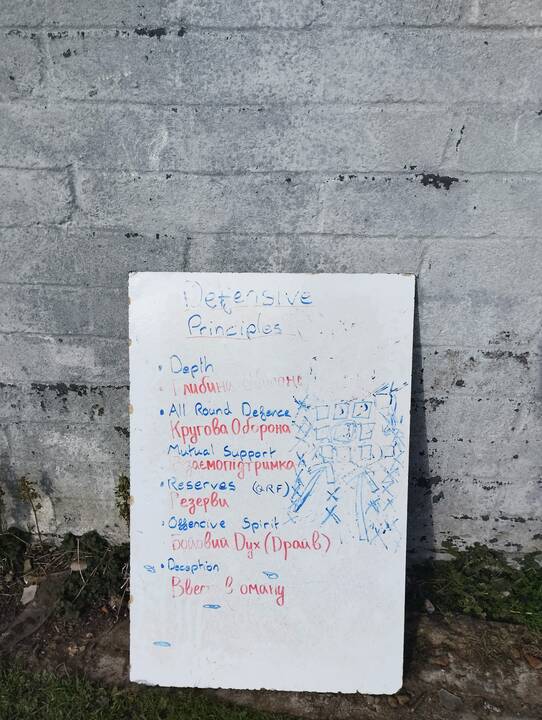 Defensive
Principles
• Depth
Глибина
• All Round Defence
Кругова Оборона
Mutual Support
Взаємопідтримка
• Reserves (QRF)
Резерви
• Offencive Spirit
Бойовий Дух (Драйв)
• Deception
в оману